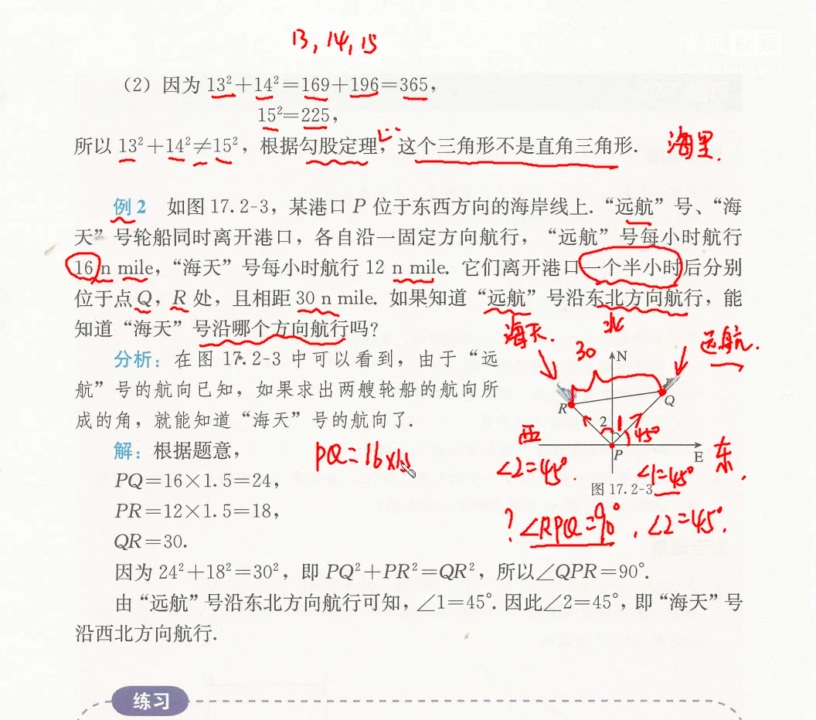 13, 14, 15
(2) 因为 13²+14²=169+196=365,
15²=225,
所以 13²+14²≠15², 根据勾股定理, 这个三角形不是直角三角形.
海里.
例2 如图 17.2-3, 某港口 P 位于东西方向的海岸线上. “远航”号、“海
天”号轮船同时离开港口, 各自沿一固定方向航行, “远航”号每小时航行
16 n mile, “海天”号每小时航行 12 n mile. 它们离开港口一个半小时后分别
位于点 Q, R 处, 且相距 30 n mile. 如果知道“远航”号沿东北方向航行, 能
知道“海天”号沿哪个方向航行吗?
北
海天.
远航.
30
N
分析: 在图 17.2-3 中可以看到, 由于“远
航”号的航向已知, 如果求出两艘轮船的航向所
成的角, 就能知道“海天”号的航向了.
R
Q
2 1
45°
西
P
E
东.
解: 根据题意,
PQ=16×1.5
∠2=45°.
∠1=45°
PQ=16×1.5=24,
图 17.2-3
PR=12×1.5=18,
? ∠RPQ=90°, ∠2=45°.
QR=30.
因为 24²+18²=30², 即 PQ²+PR²=QR², 所以∠QPR=90°.
由“远航”号沿东北方向航行可知, ∠1=45°. 因此∠2=45°, 即“海天”号
沿西北方向航行.
练习